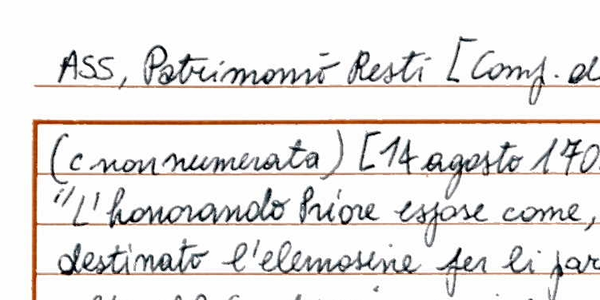 ASS, Patrimonio Resti [Comp. d
(c non numerata) [14 agosto 170
"L'honorando Priore espose come,
destinato l'elemosine per li par